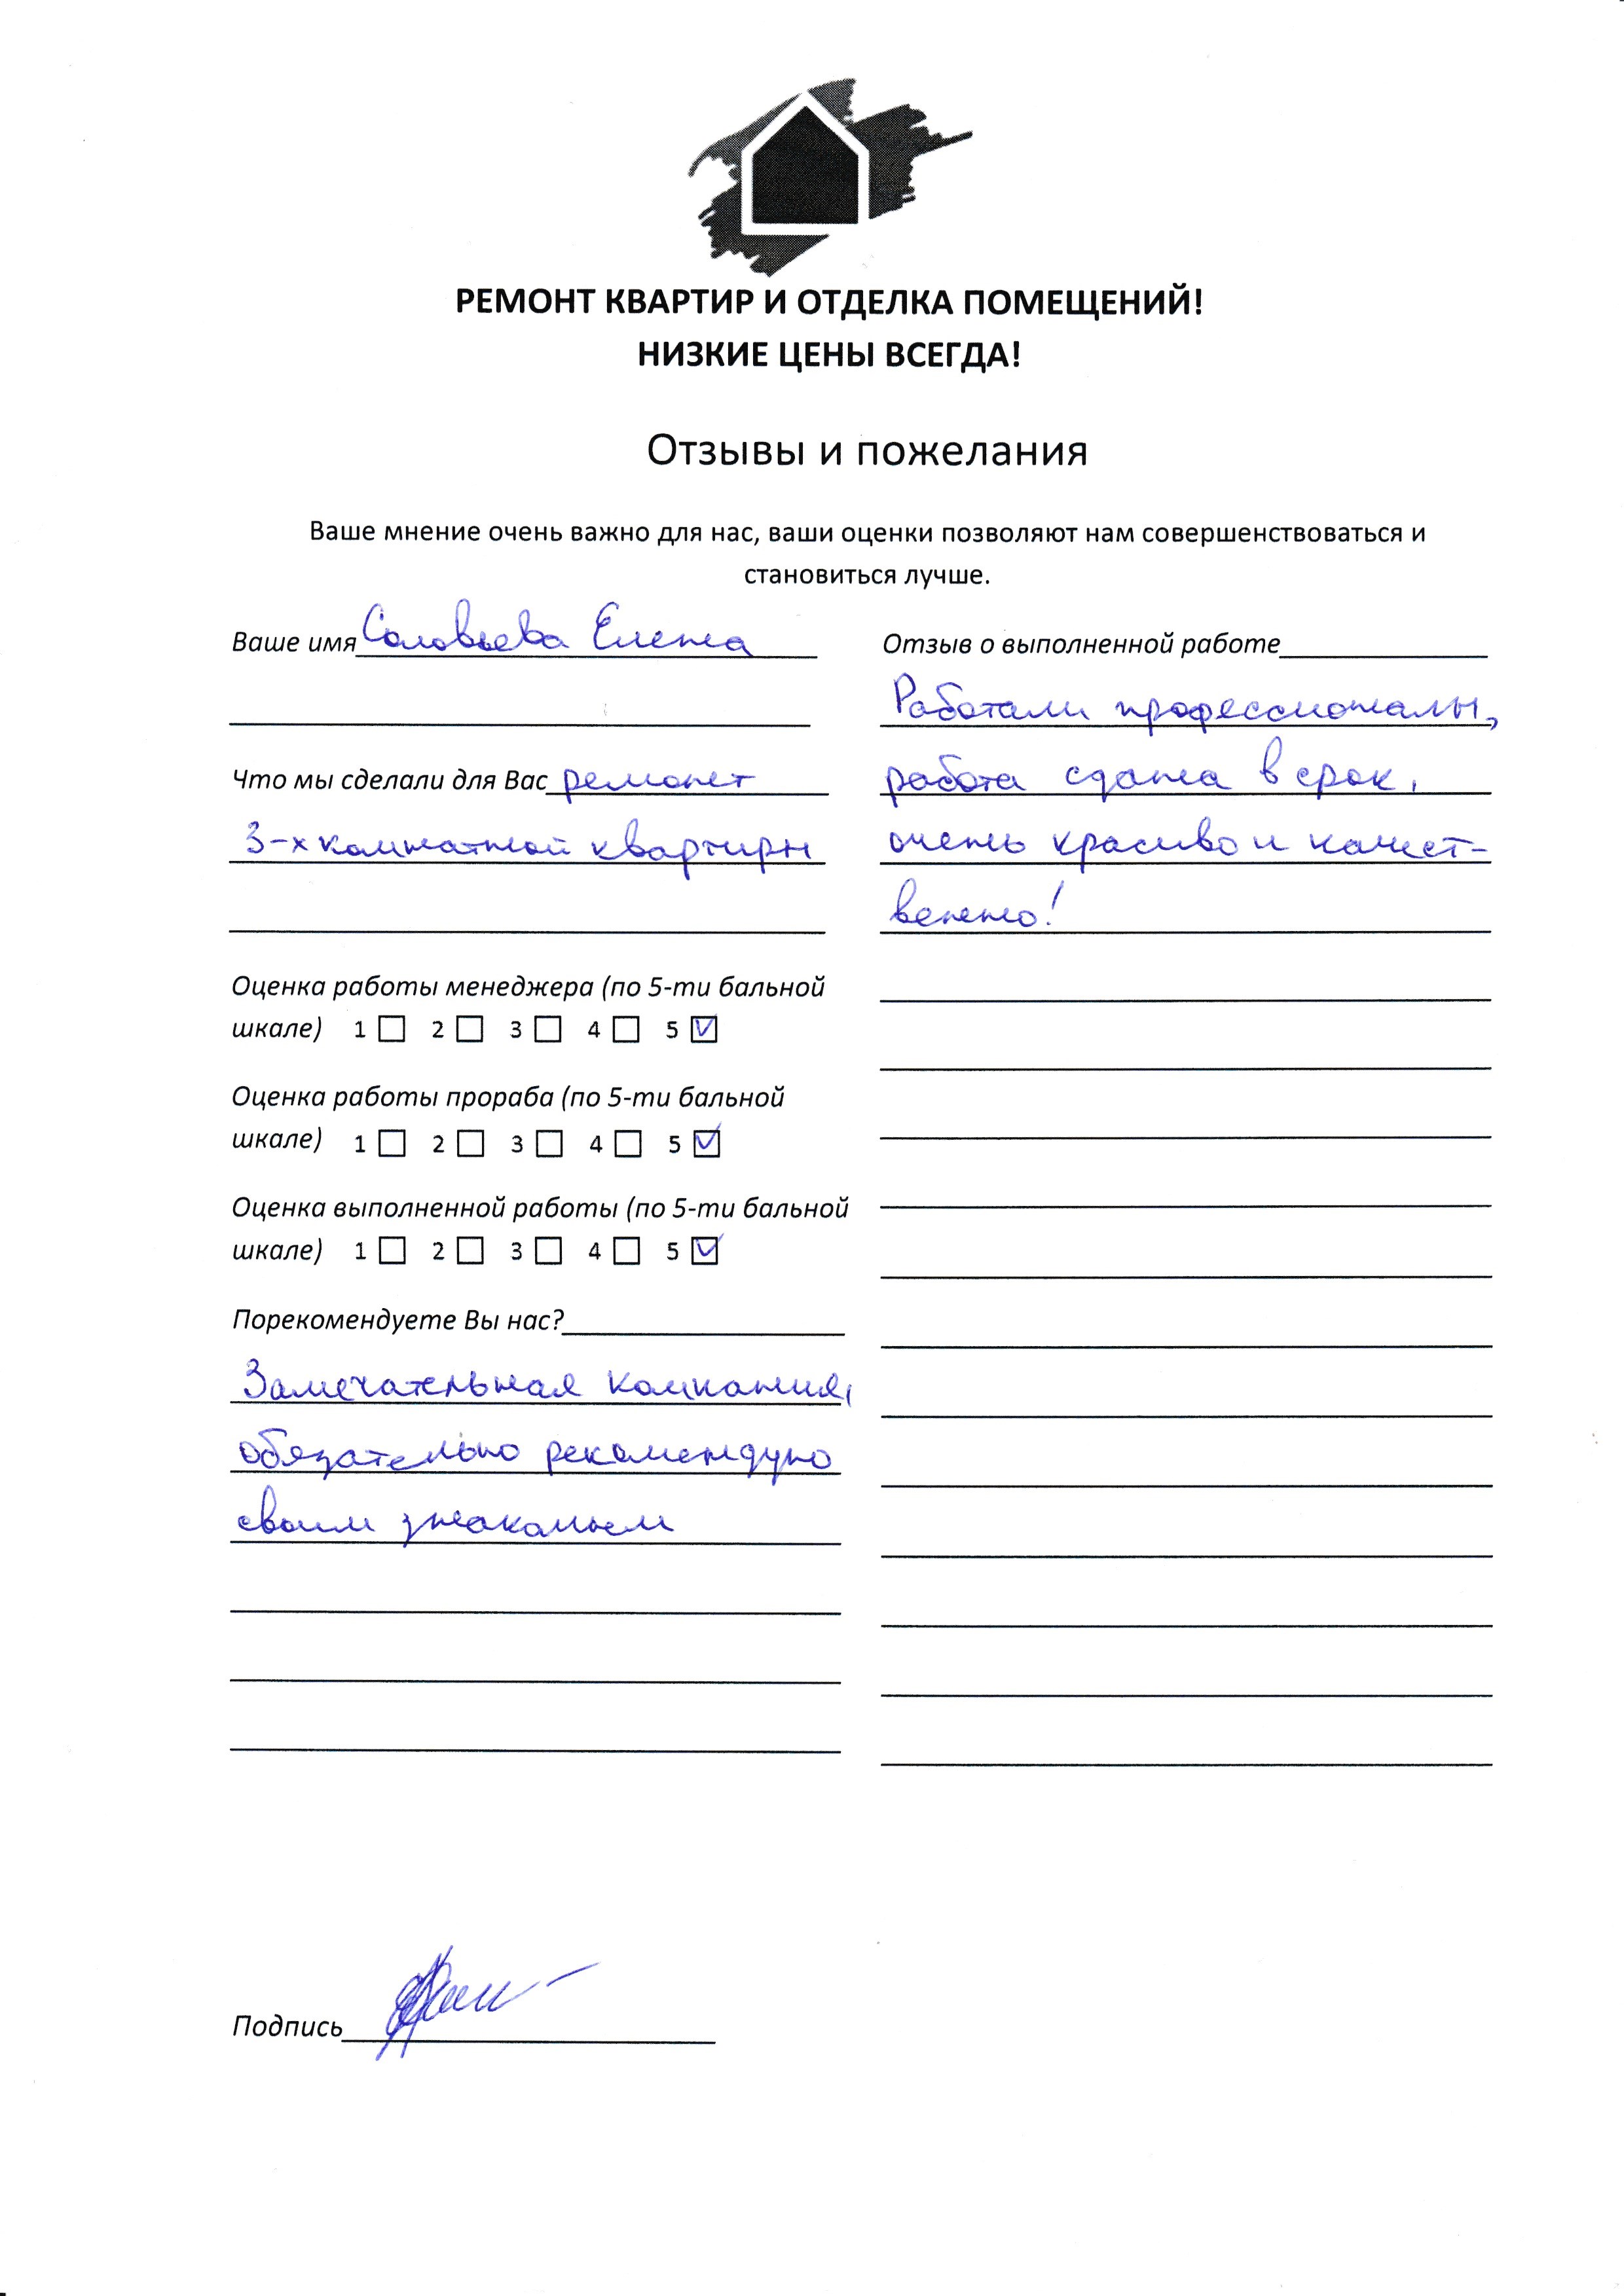 РЕМОНТ КВАРТИР И ОТДЕЛКА ПОМЕЩЕНИЙ!
НИЗКИЕ ЦЕНЫ ВСЕГДА!
Отзывы и пожелания
Ваше мнение очень важно для нас, ваши оценки позволяют нам совершенствоваться и
становиться лучше.
Ваше имя Соловьева Елена
Что мы сделали для Вас ремонт
3-х комнатной квартиры
Оценка работы менеджера (по 5-ти бальной
шкале) 1 2 3 4 5
Оценка работы прораба (по 5-ти бальной
шкале) 1 2 3 4 5
Оценка выполненной работы (по 5-ти бальной
шкале) 1 2 3 4 5
Порекомендуете Вы нас?
Замечательная компания,
обязательно рекомендую
своим знакомым
Отзыв о выполненной работе
Работали профессионалы,
работа сдана в срок,
очень красиво и качест-
венно!
Подпись